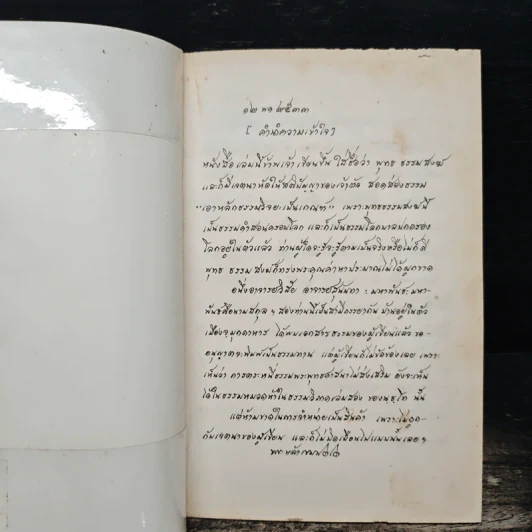 ๑๒ พ.ย. ๒๕๓๓
[ คำนำความเข้าใจ ]
หนังสือเล่มนี้ข้าพเจ้าเขียนขึ้น ใส่ชื่อว่า พุทธ ธรรม สงฆ์
และก็มีเจตนาหัดใช้สติปัญญาของเจ้าตัว สอดส่องธรรม
"เอาหลักธรรมวินัยเป็นเกณฑ์" เพราะพุทธธรรมสงฆ์นี้
เป็นธรรมคำสอนครอบโลก และก็เป็นธรรมโลกบาลปกครอง
โลกอยู่ในตัวแล้ว ท่านผู้ใดจะรู้จะรู้ตามเป็นจริงหรือไม่ก็ดี
พุทธ ธรรม สงฆ์ก็ทรงพระคุณค่าหาประมาณไม่ได้ผูกขาด
อนึ่งอาจารย์วิสัย อาจารย์สุนันทา : มหาพันธ: มหา
พันธ์คือนามสกุล ฯ สองท่านนี้เป็นสามีภรรยากัน บ้านอยู่ในตัว
เมืองจ.มุกดาหาร ได้พบเอกสารธรรมของผู้เขียนแล้ว ขอ
อนุญาตจะพิมพ์เป็นธรรมทาน และผู้เขียนก็ไม่ขัดข้องเลย เพราะ
เห็นว่า การตระหนี่ธรรมพระพุทธศาสนาไม่ส่งเสริม ดังจะเห็น
ได้ในธรรมหมวดห้าในธรรมวิภาคเล่มสอง ของนวโก นั้น
แต่ห้ามขาดในการจำหน่ายเป็นสินค้า เพราะไม่ถูก
กับเจตนาของผู้เขียน และก็ไม่บิดเบือนไปแบบนั้นเลย ฯ
หล้า เขมปตฺโต